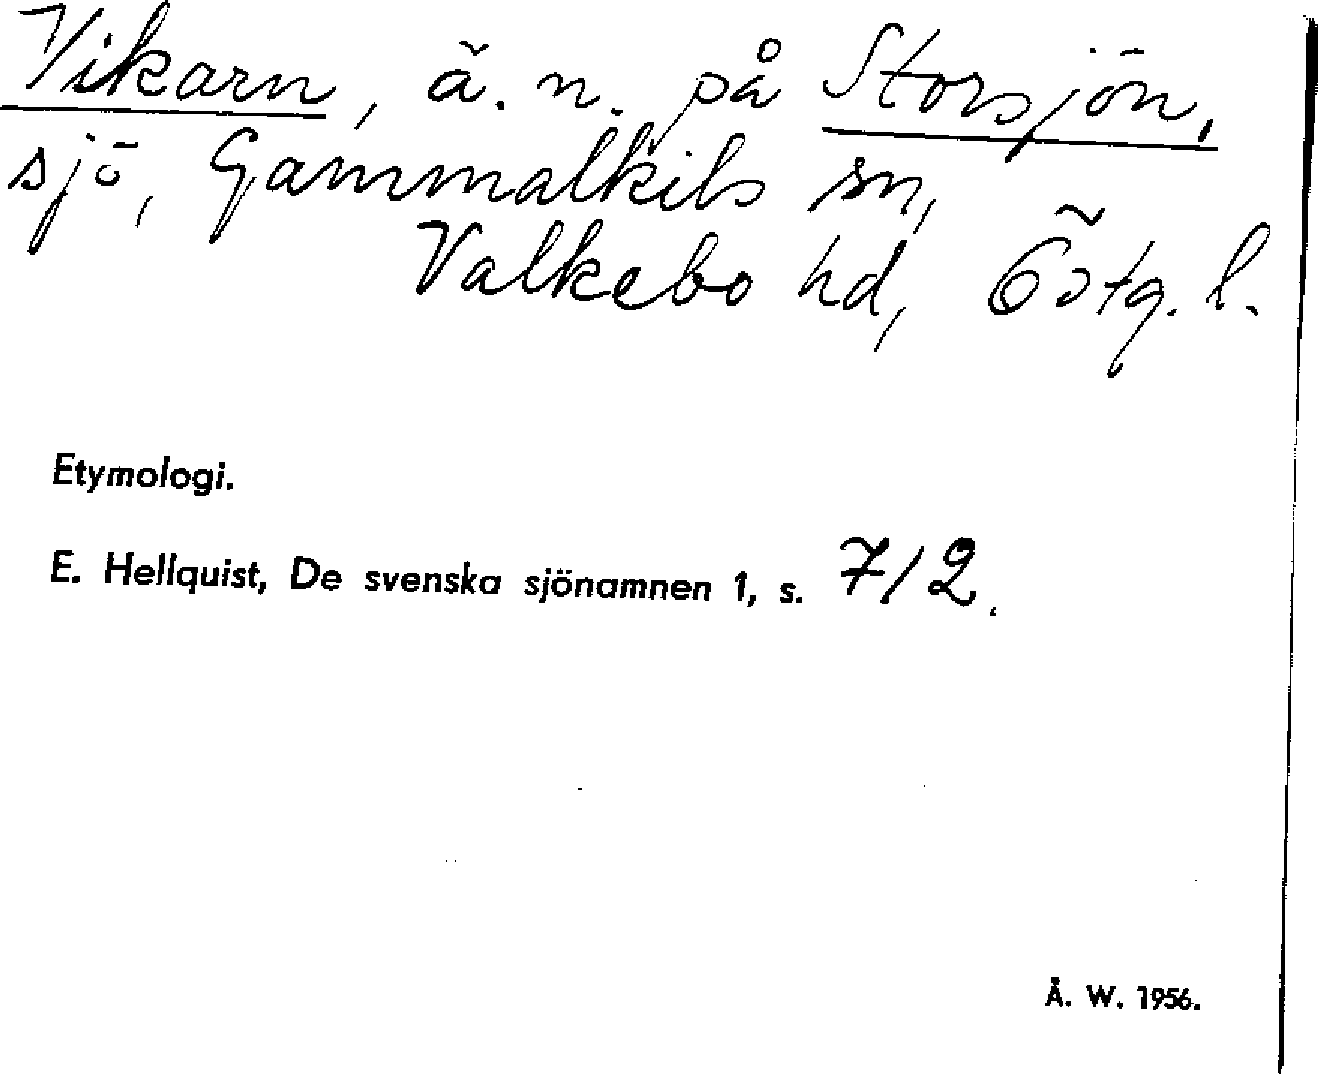 Vikarn, ä. n. på Storsjön,
sjö, Gammalkils sn,
Valkebo hd, Östg. l.
Etymologi.
E. Hellquist, De svenska sjönamnen 1, s. 712.
Å. W. 1956.